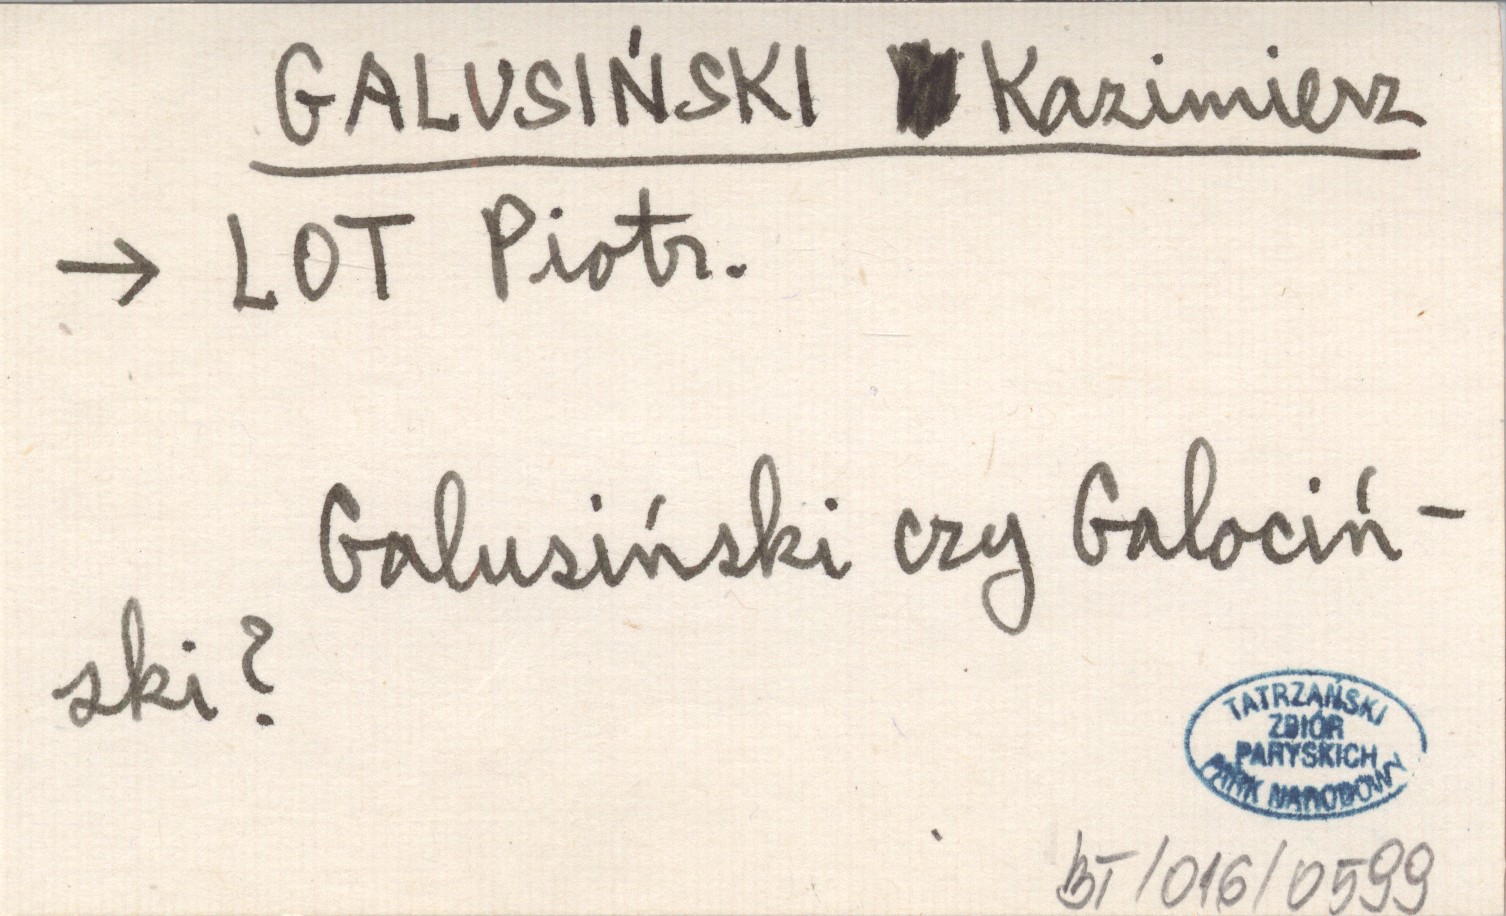 GALUSIŃSKI Kazimierz
→ LOT Piotr.
Galusiński czy Galociń-
ski?
TATRZAŃSKI
ZBIÓR
PARYSKICH
PARK NARODOWY
BT/016/0599